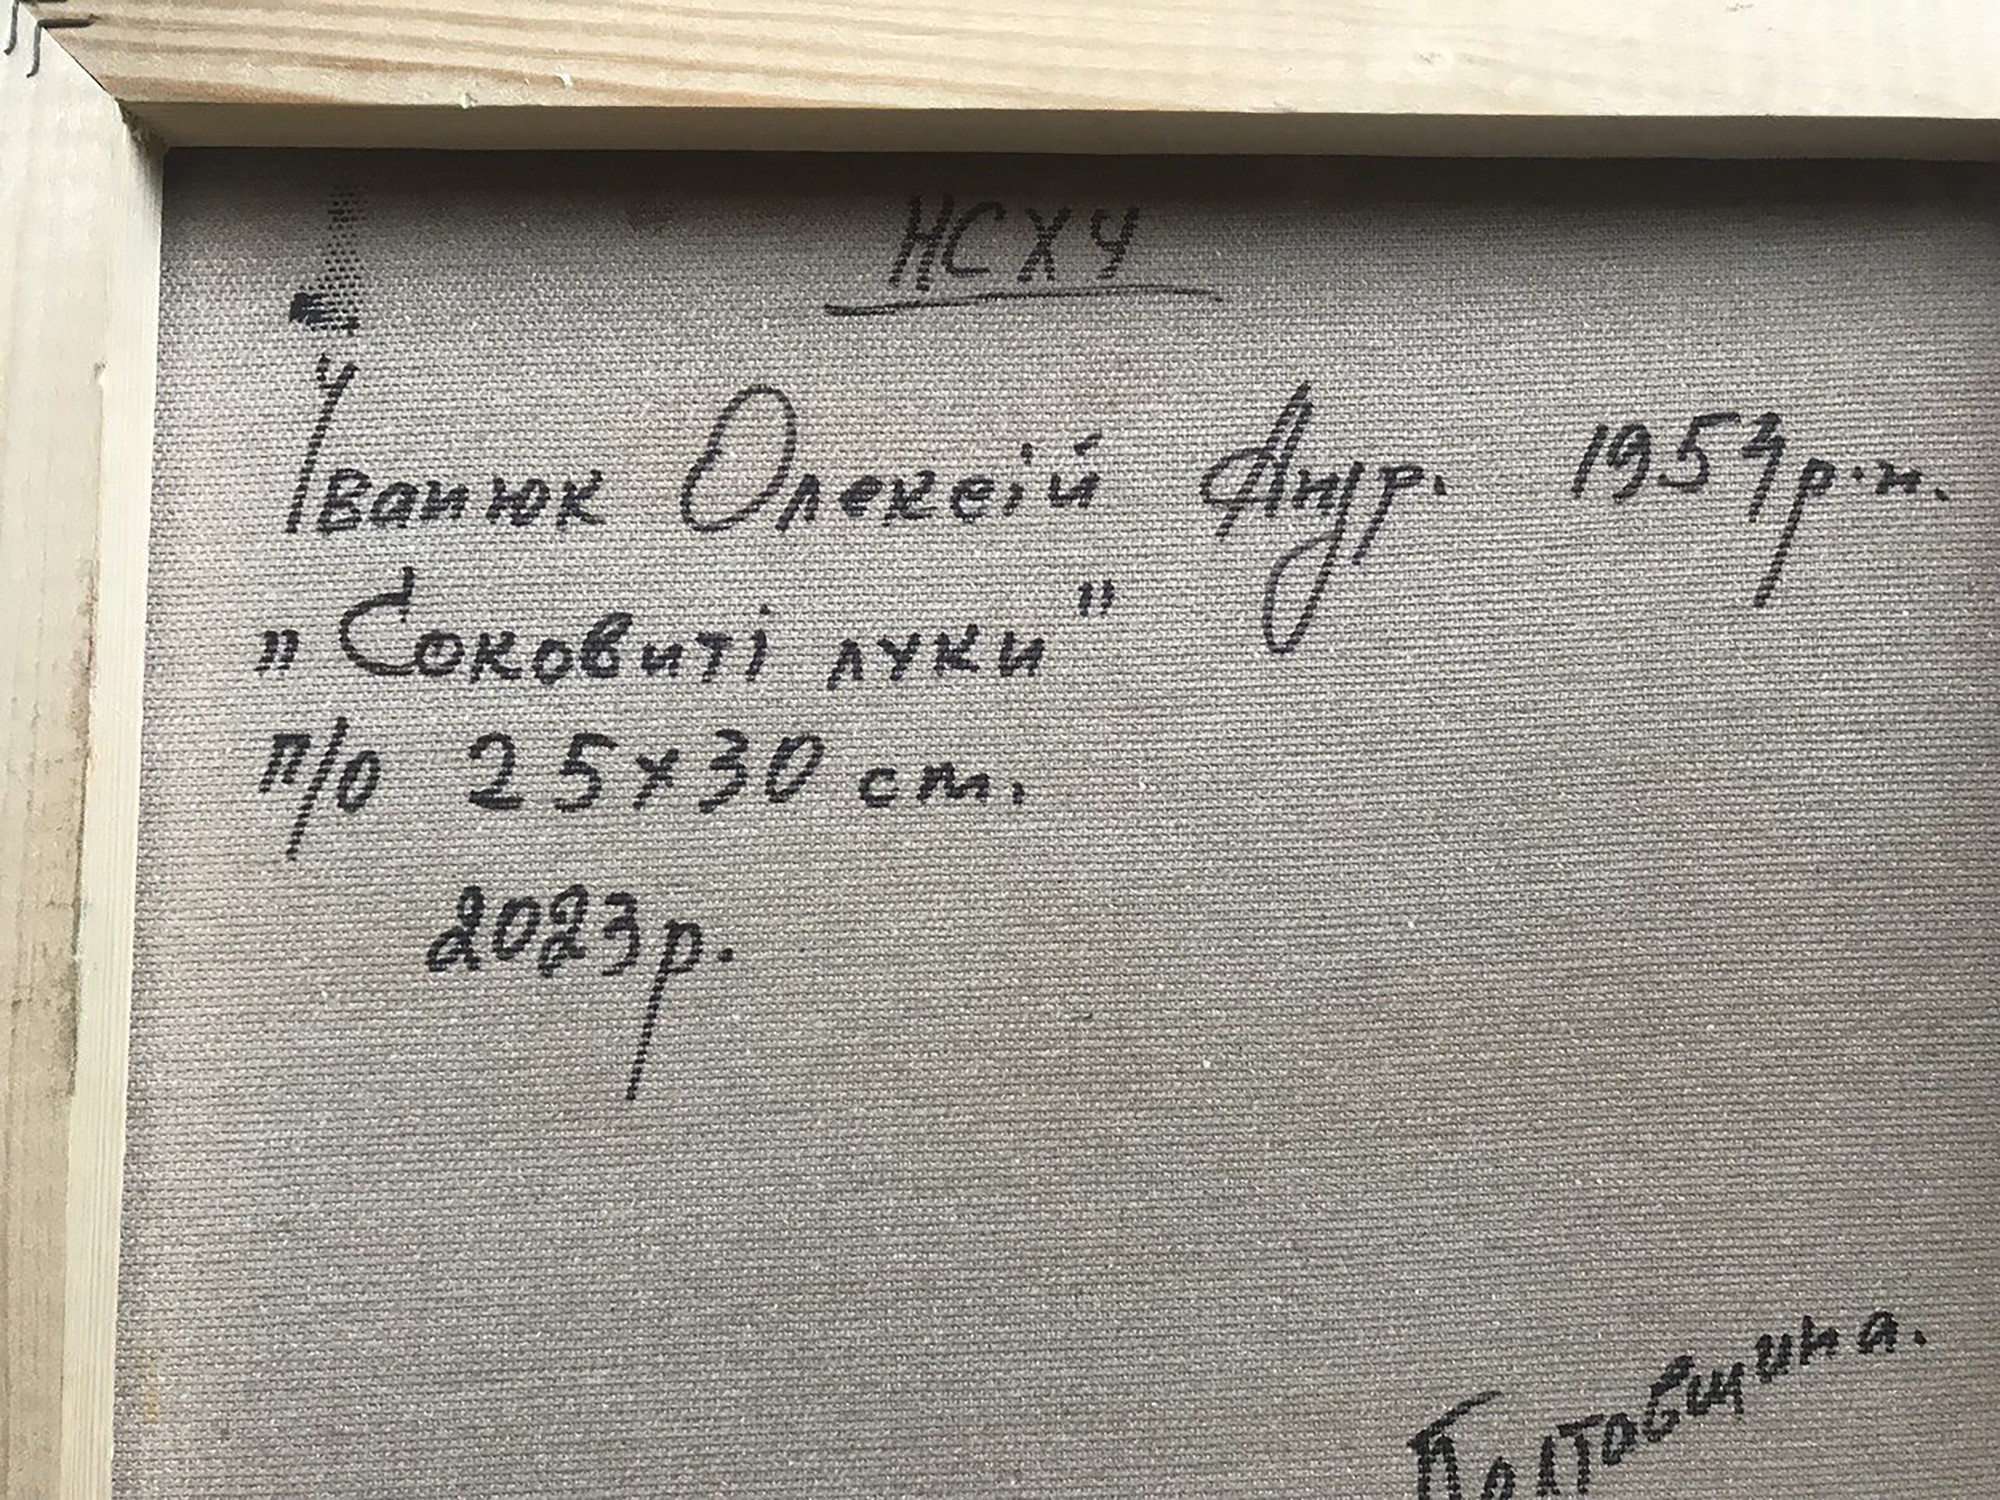 НСХУ
Іванюк Олексій Андр. 1954 р.н.
„Соковиті луки"
п/о 25x30 cm.
2023 р.
Полтавщина.